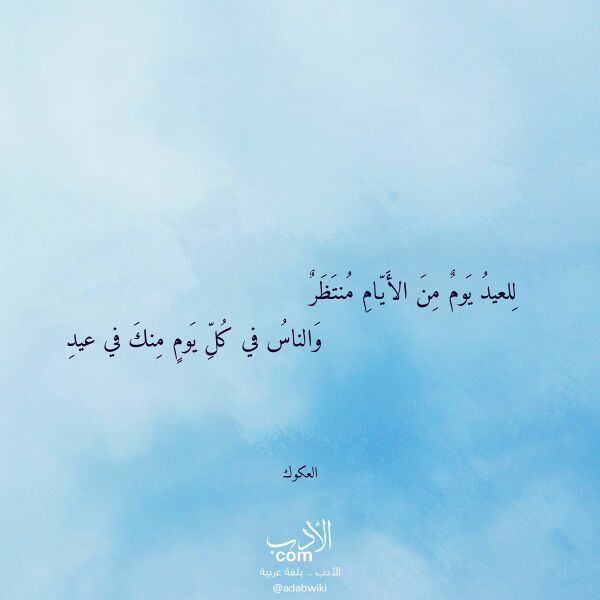 لِلعيدُ يَومٌ مِنَ الأَيّامِ مُنتَظَرٌ
وَالناسُ في كُلِّ يَومٍ مِنكَ في عيدِ
العكوك
الأدب
com
الأدب .. بلغة عربية
@adabwiki